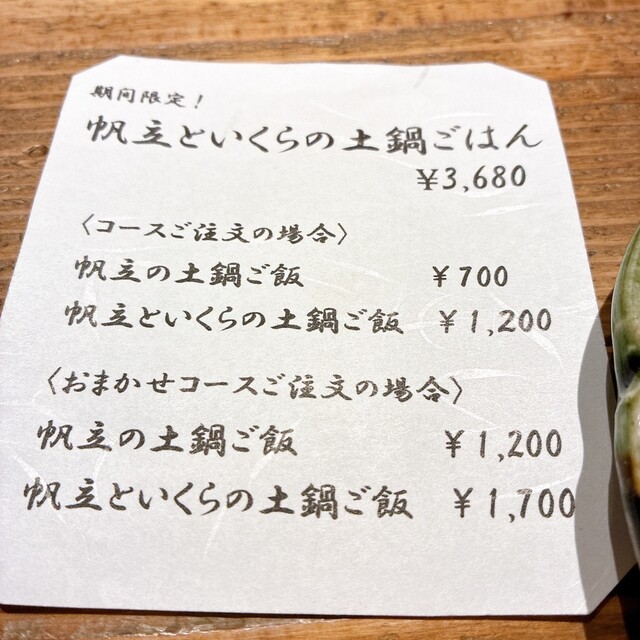 期間限定！
帆立といくらの土鍋ごはん
¥3,680
〈コースご注文の場合〉
帆立の土鍋ご飯 ¥700
帆立といくらの土鍋ご飯 ¥1,200
〈おまかせコースご注文の場合〉
帆立の土鍋ご飯 ¥1,200
帆立といくらの土鍋ご飯 ¥1,700